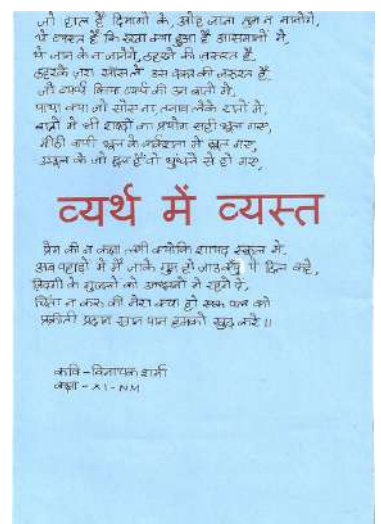 जो हाल है दिमागों के, ओह जाना तुम न मानोगे,
ये व्यस्त है कि रखा क्या हुआ है आसमानों में,
ये जान के न जानेंगे, ठहरने की जरूरत है,
ठहरके ज़रा सांस लें उस वक़्त की जरूरत है,
जो व्यर्थ किया व्यर्थ की उन बातों में,
पाया क्या जो सोए ना, तनाव लेके रातों में,
बातों में भी शब्दों का प्रयोग सही भूल गए,
मीठी वाणी भूल के कर्कशता में खुल गए,
उसूल के जो है वो धुंधले से हो गए,
व्यर्थ में व्यस्त
प्रेम की न कक्षा लगी क्योंकि शायद स्कूल में,
अब पहाड़ों में मैं जाके गुम हो जाऊं ये दिल कहे,
के को में रहने दे,
चिंता न करूं की मेरा क्या हो सके कल को
प्रकृति प्रदान खान पान हमको खुद करे ॥
कवि – विनायक शर्मा
कक्षा – XI - NM